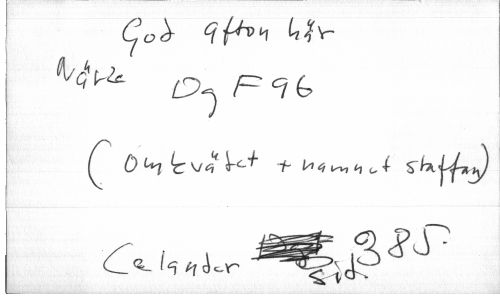 God afton här
Närke
Og F 96
(omkvädet + namnet staffan)
Celander sid. 385.